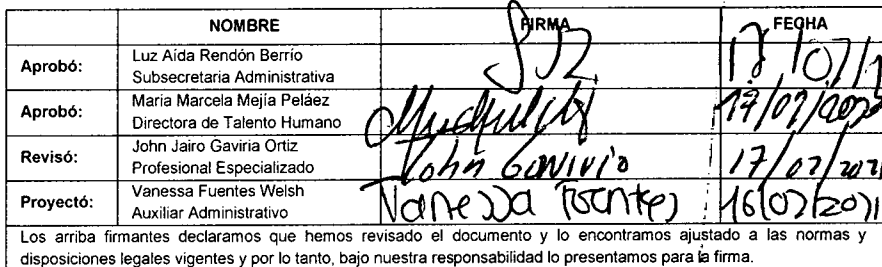 NOMBRE FIRMA FECHA
Aprobó: Luz Aída Rendón Berrío
Subsecretaria Administrativa
Aprobó: Maria Marcela Mejía Peláez
Directora de Talento Humano
Revisó: John Jairo Gaviria Ortiz John Gaviria 17/07/2021
Profesional Especializado
Proyectó: Vanessa Fuentes Welsh Vanessa Fuentes 16/07/2021
Auxiliar Administrativo
Los arriba firmantes declaramos que hemos revisado el documento y lo encontramos ajustado a las normas y
disposiciones legales vigentes y por lo tanto, bajo nuestra responsabilidad lo presentamos para la firma.